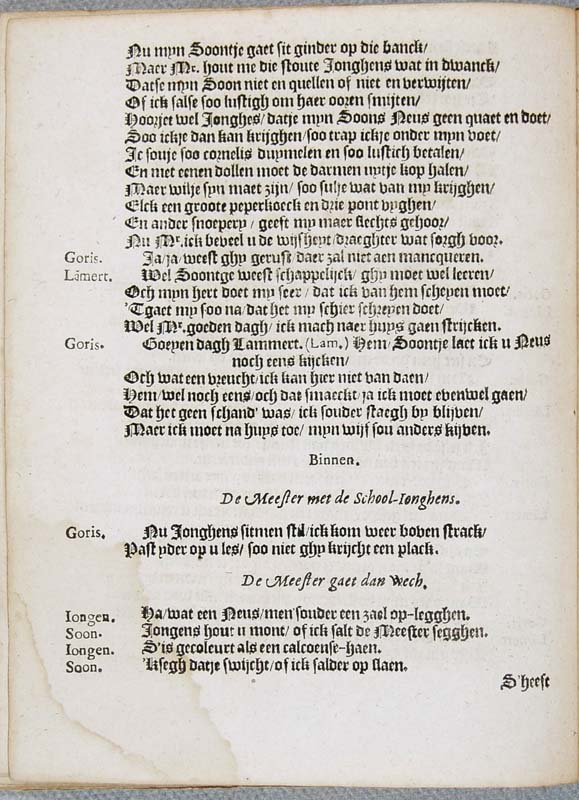 Nu myn Soontje gaet sit ginder op die banck/
Maer Mr. hout me die stoute Jonghens wat in dwanck/
Datse myn Soon niet en quellen of niet en verwijten/
Of ick salse soo lustigh om haer ooren smijten/
Hoorjet wel Jonghes/ datje myn Soons Neus geen quaet en doet/
Soo ickje dan kan krijghen/ soo trap ickje onder myn voet/
Je souje soo cornelis duymelen en soo lustich betalen/
En met eenen dollen moet de darmen uytje kop halen/
Maer wilje syn maet zijn/ soo sulje wat van my krijghen/
Elck een groote peperkoeck en drie pont vyghen/
En ander snoepery / geeft my maer slechts gehoor/
Nu Mr. ick beveel u de wijsheyt/ draeghter wat sorgh voor.
Goris. Ja/ja/ weest ghy gerust/ daer zal niet aen mancqueren.
Lãmert. Wel Soontge weest schappelijck/ ghy moet wel leeren/
Och myn hert doet my seer / dat ick van hem scheyen moet/
'Tgaet my soo na/ dat het my schier schreyen doet/
Wel Mr. goeden dagh/ ick mach naer huys gaen strijcken.
Goris. Goeyen dagh Lammert. (Lam.) Hem/ Soontje laet ick u Neus
noch eens kijcken/
Och wat een vreucht/ ick kan hier niet van daen/
Hem/ wel noch eens/ och dat smaeckt/ ja ick moet evenwel gaen/
Dat het geen schand' was/ ick souder staegh by blijven/
Maer ick moet na huys toe/ myn wijf sou anders kijven.
Binnen.
De Meester met de School-Ionghens.
Goris. Nu Jonghens sitmen stil/ ick kom weer boven strack/
Past yder op u les/ soo niet ghy krijcht een plack.
De Meester gaet dan wech.
Iongen. Ha/ wat een Neus/ men souder een zael op-legghen.
Soon. Jongens hout u mont/ of ick salt de Meester segghen.
Iongen. S'is gecoleurt als een calcoense-haen.
Soon. 'Ksegh datje swijcht/ of ick salder op slaen.
S'heeft